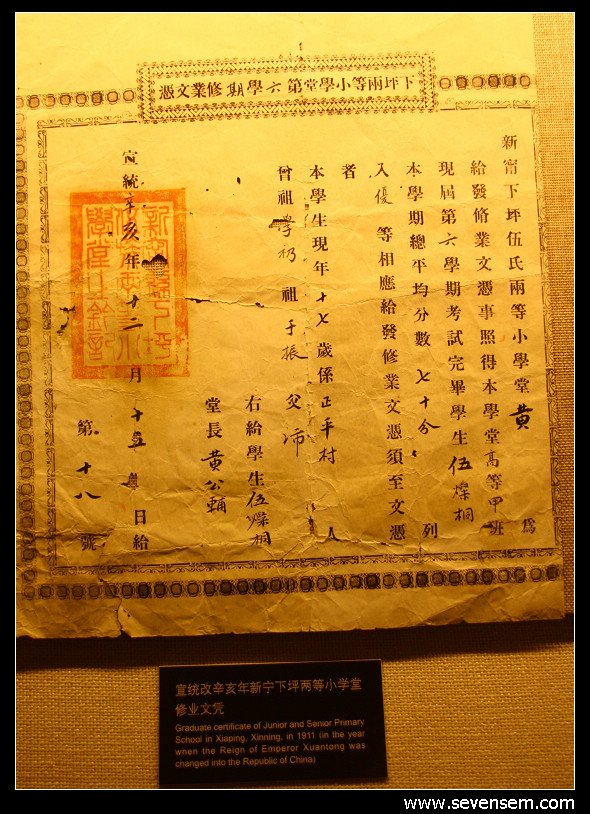 下坪兩等小學堂第六學期修業文憑
新甯下坪伍氏兩等小學堂黃 爲
給發修業文憑事照得本學堂高等甲班
現屆第六學期考試完畢學生伍燦桐
本學期總平均分數七十分 列
入優等相應給發修業文憑須至文憑
者
本學生現年十七歲係正平村人
曾祖學礽祖于振父沛
右給學生伍燦桐
堂長黃公輔
宣統辛亥年十二月十五日給
第十八號
宣统改辛亥年新宁下坪两等小学堂
修业文凭
Graduate certificate of Junior and Senior Primary
School in Xiaping, Xinning, in 1911 (in the year
when the Reign of Emperor Xuantong was
changed into the Republic of China)
www.sevensem.com